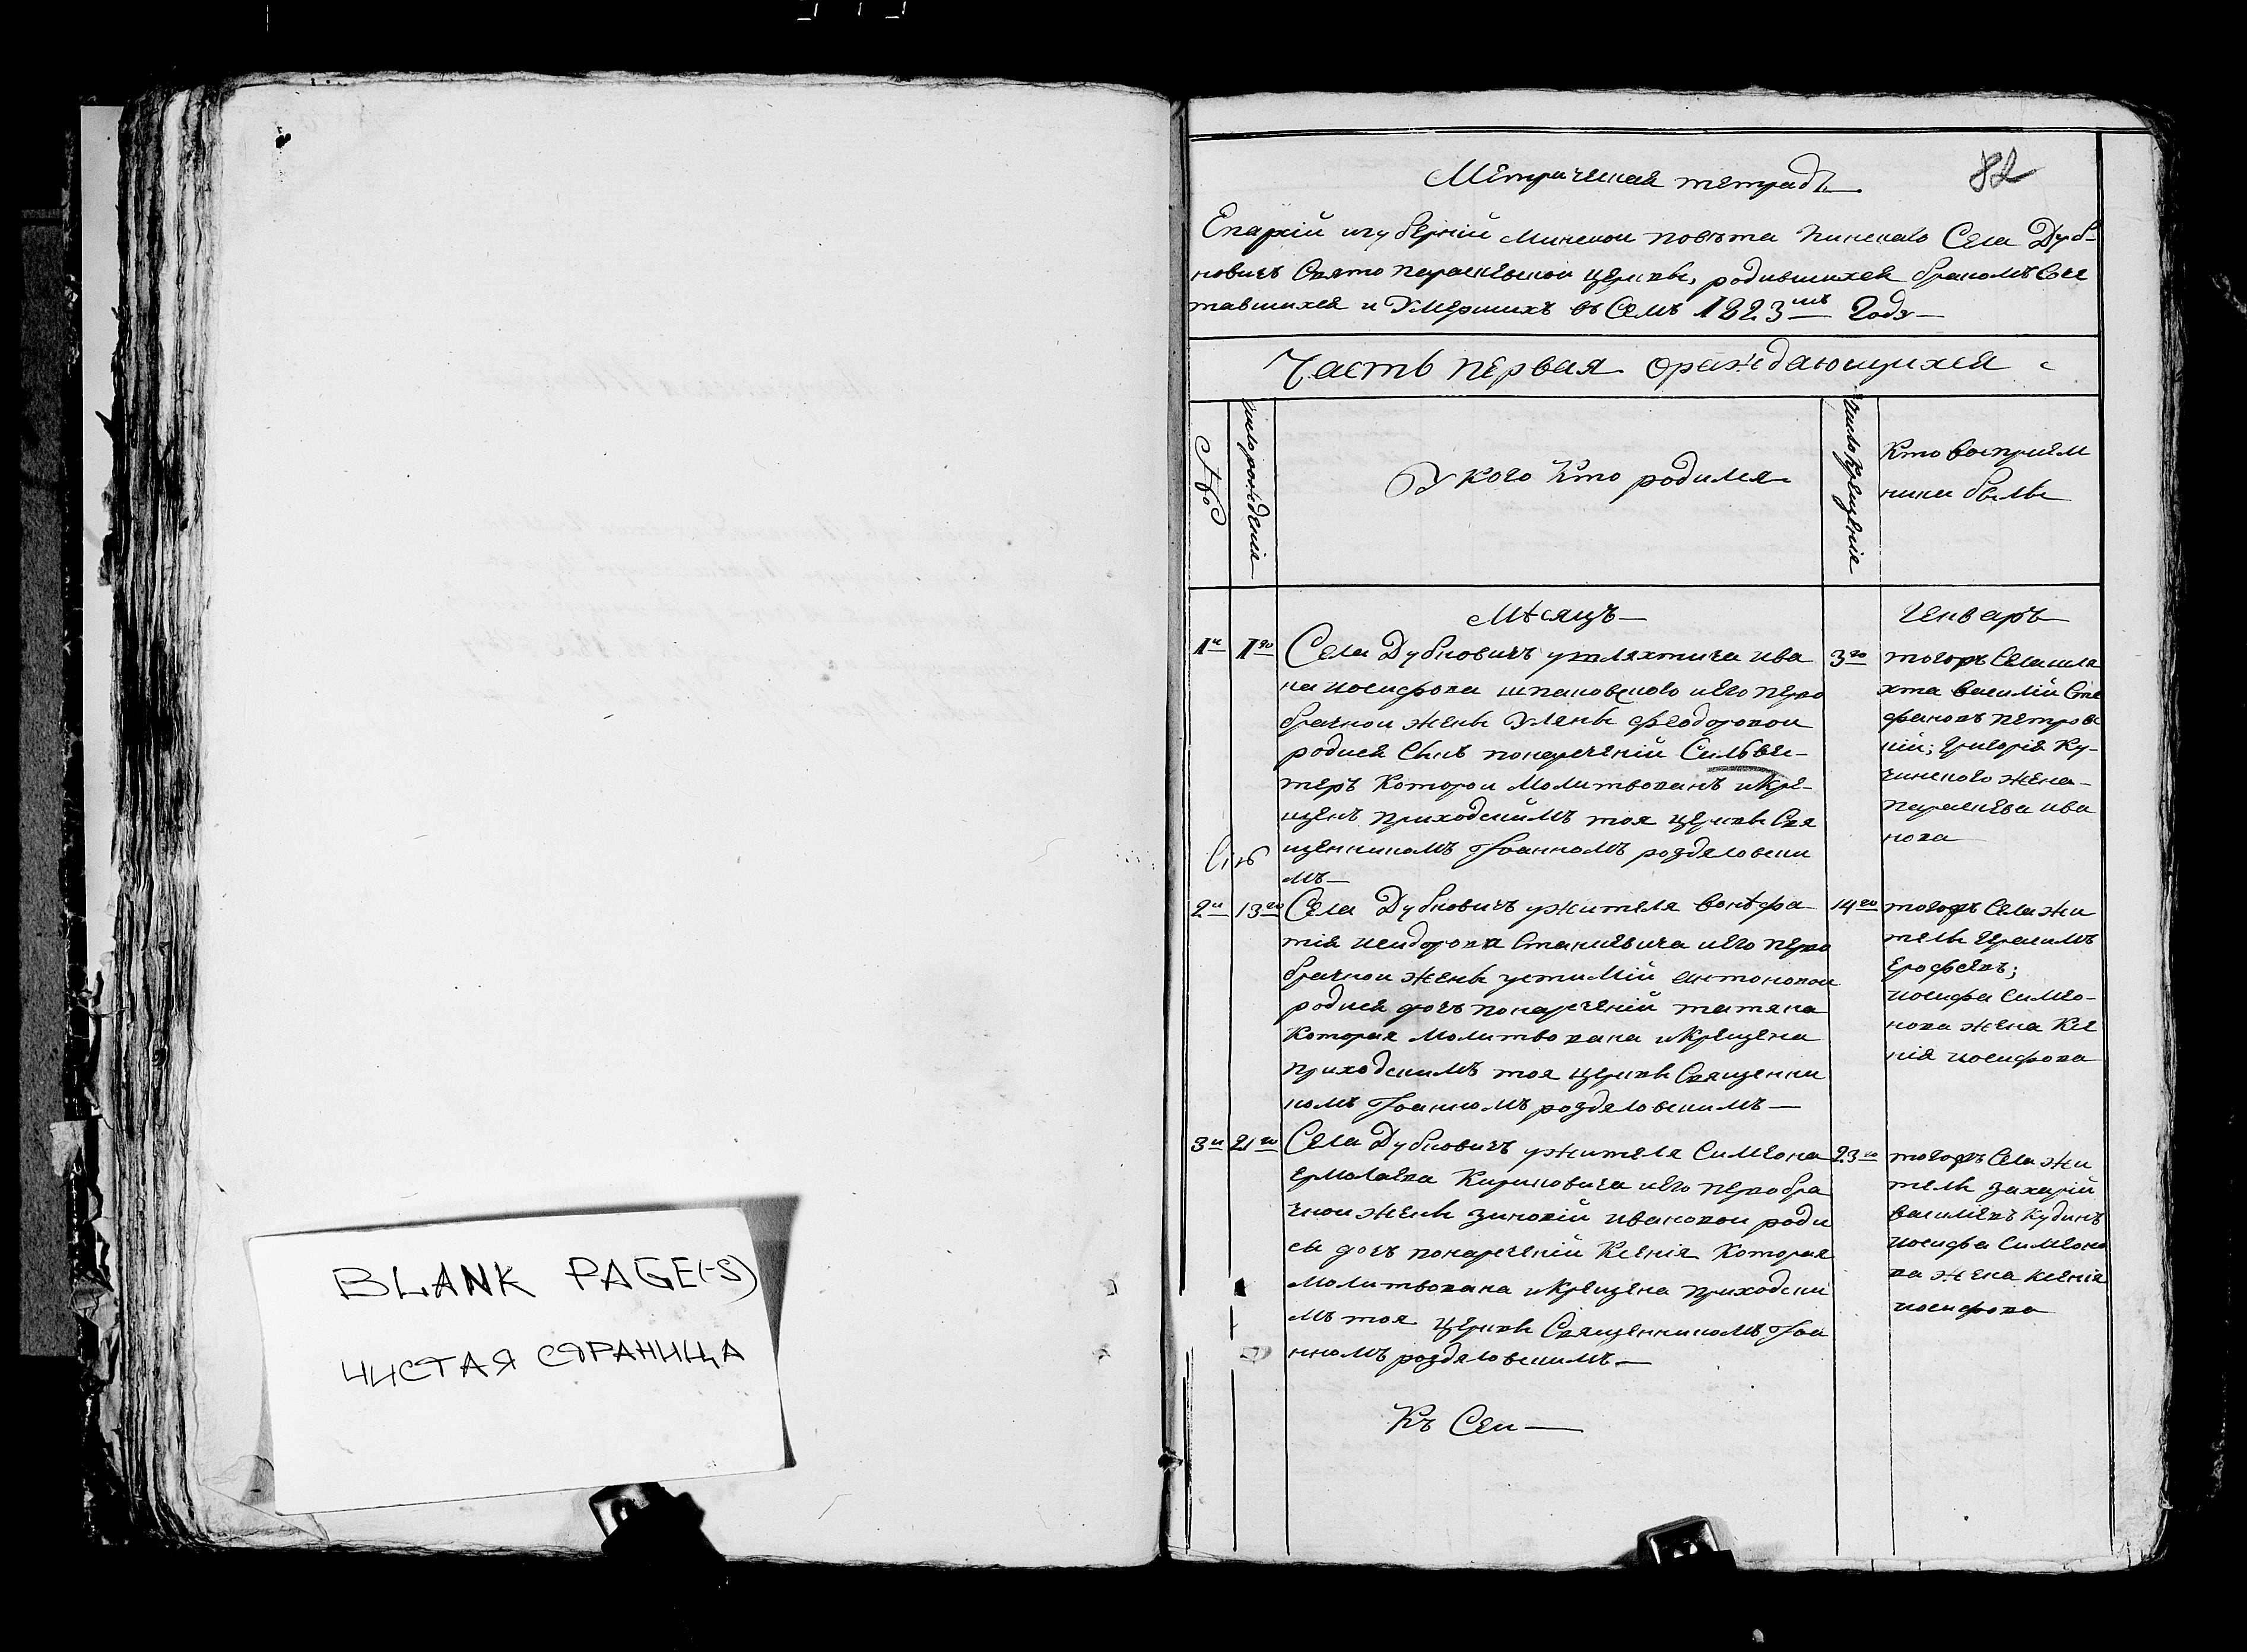 BLANK PAGE(-S)
ЧИСТАЯ СТРАНИЦА
82
Метрическая тетрадь
Епархій игуберніи Минской повѣта Пинскаго Села Дуб-
новичъ Свято параскевской церкви, родившихся бракомъ Соче
тавшихся и Умершихъ въ Семъ 1823мъ Годѣ
Часть Первая ораждающихся
число рожденія
У кого Кто родился
число Крещенія
Кто восприем
ники были
Мѣсяцъ
Генваръ
1й 1го Села Дубновичъ ушляхтича ива
на иосифова шпаковского иего перво
брачной жены Улены феодоровой
родися Сынъ понареченій Сильве-
теръ Которой Молитвованъ икре-
щенъ приходскимъ тоя церкви Свя
щенникомъ Иоанномъ роздяловски
мъ
3го
тогожъ Села шля
хта василій Сте
фановъ петровс
кій; григорія Ку-
чинского жена
параскева ива
нова
2й 13го Села Дубновичъ ужителя вонѣфа
тія исидорова Станкевича иего перво
брачной жены устимій антоновой
родися дочъ понареченій татяна
Которая Молитвована икрещена
приходскимъ тоя церкви Священни
комъ Иоанномъ роздяловскимъ
14го
тогожъ Села жи
тель герасимъ
Ерофеевъ;
иосифа Симео-
нова жена Ксе
нія иосифова
3й 21го Села Дубновичъ ужителя Симеона
ермолаева Кириковича иего первобра
чной жены зиновій ивановой роди
ся дочъ понареченій Ксенія Которая
Молитвована икрещена приходски
мъ тоя церкви Священникомъ Иоа
нномъ роздяловскимъ
23го
тогожъ Села жи
тель захарій
василевъ Кудинъ
иосифа Симеоно
ва жена Ксенія
иосифова
Къ Сей